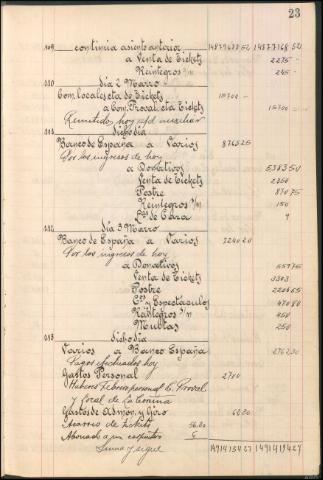 23
009 continúa asiento anterior 14879688 52 14877168 52
a Venta de Tickets 2275 -
Reintegros 245 -
010 Día 2 Marzo
Com. locales cta de Tickets 15700 -
a Com. Proval. cta Tickets 15700 -
Remitido hoy
011 dicho día
Banco de España a Varios 8763 25
Por los ingresos de hoy
a Donativos 5383 50
Venta de Tickets 2250
Postre 870 75
Reintegros 150
9
012 Día 3 Marzo
Banco de España a Varios
Por los ingresos de hoy
a Donativos
Venta de Tickets
Postre
Cés y Espectaculos 470 80
Reintegros 450
Multas 250
013 dicho día
Varios a Banco España 2767,30
Pagos efectuados hoy
Gastos Personal 2700
Haberes Febrero personal C. Proval
y local de La Coruña
Gastos de Admón. y Giro 60,80
Acarreo de tickets 56.80
Abonado a un
Suma y sigue 14914194 27 14914194 27